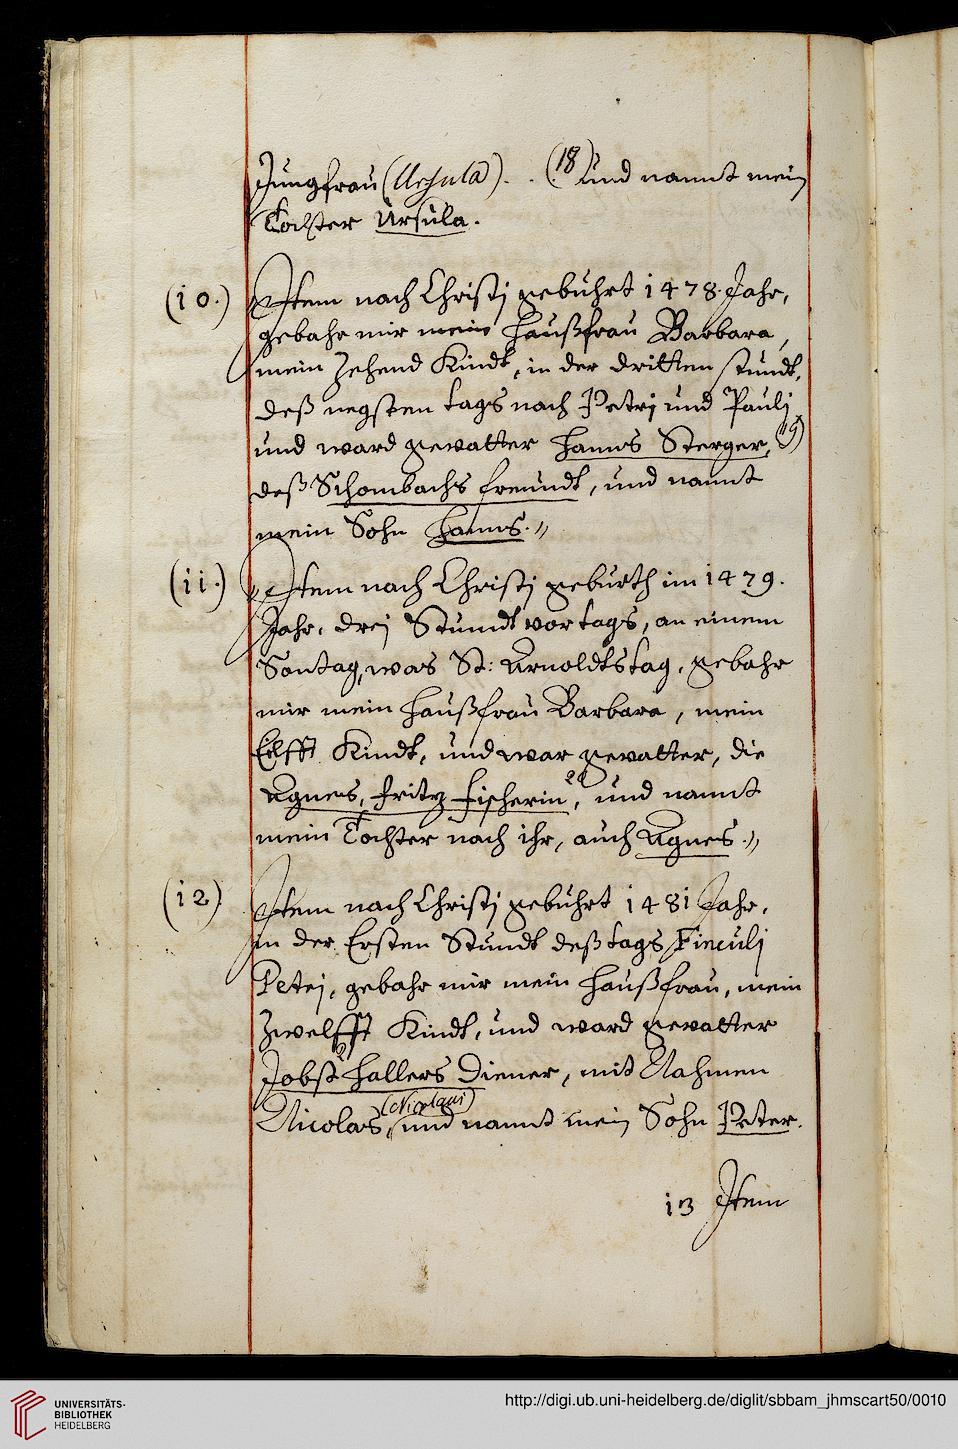 Jungfrau (Ursula) . . (18) Und nannt mein
Tochter Ursula.
(10.) Item nach Christi gebuhrt 1478. Jahr,
gebahr mir mein Haußfrau Barbara,
mein Zehend Kindt, in der dritten stundt,
deß negsten tags nach Petri und Pauli
und ward gevatter Hanns Sterger, (19)
deß Schombachs freundt, und nannt
mein Sohn Hanns.
(11.) Item nach Christi geburth im 1479.
Jahr, drei Stundt vor tags, an einem
Sontag, was St: Arnoldtstag, gebahr
mir mein Haußfrau Barbara, mein
Eilfft Kindt, und war gevatter, die
Agnes, Fritz Fischerin 20, und nannt
mein Tochter nach ihr, auch Agnes.
(12) Item nach Christi gebuhrt 1481 Jahr,
in der Ersten Stundt deß tags Finculi
Petri, gebahr mir mein Haußfrau, mein
Zwelfft Kindt, und ward gevatter
Jobst Hallers Diener, mit Nahmen
Nicolas, (Nicolaus) und nannt mein Sohn Peter.
13 Item
UNIVERSITÄTS-
BIBLIOTHEK
HEIDELBERG
http://digi.ub.uni-heidelberg.de/diglit/sbbam_jhmscart50/0010